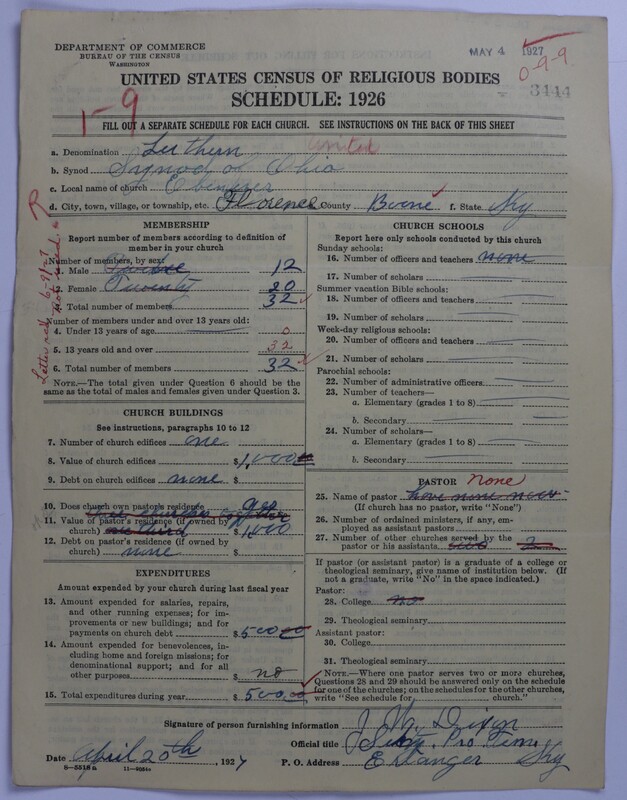 DEPARTMENT OF COMMERCE
BUREAU OF THE CENSUS
WASHINGTON
MAY 4 1927
0-9-9
UNITED STATES CENSUS OF RELIGIOUS BODIES
SCHEDULE: 1926
3444
1-9
FILL OUT A SEPARATE SCHEDULE FOR EACH CHURCH. SEE INSTRUCTIONS ON THE BACK OF THIS SHEET
a. Denomination Luthern United
b. Synod Synod of Ohio
c. Local name of church Ebenezer
d. City, town, village, or township, etc. Florence County Boone f. State Ky
R
MEMBERSHIP
Report number of members according to definition of
member in your church
Number of members, by sex:
1. Male Twelve 12
2. Female Twenty 20
3. Total number of members 32
Number of members under and over 13 years old:
4. Under 13 years of age 0
5. 13 years old and over 32
6. Total number of members 32
NOTE.—The total given under Question 6 should be
the same as the total of males and females given under Question 3.
CHURCH BUILDINGS
See instructions, paragraphs 10 to 12
7. Number of church edifices one
8. Value of church edifices $1,000.00
9. Debt on church edifices none $
10. Does church own pastor's residence? yes
11. Value of pastor's residence (if owned by
church) one third $1,000
12. Debt on pastor's residence (if owned by
church) none $
EXPENDITURES
Amount expended by your church during last fiscal year
13. Amount expended for salaries, repairs,
and other running expenses; for im-
provements or new buildings; and for
payments on church debt $500.00
14. Amount expended for benevolences, in-
cluding home and foreign missions; for
denominational support; and for all
other purposes $ no
15. Total expenditures during year $500.00
CHURCH SCHOOLS
Report here only schools conducted by this church
Sunday schools:
16. Number of officers and teachers none
17. Number of scholars
Summer vacation Bible schools:
18. Number of officers and teachers
19. Number of scholars
Week-day religious schools:
20. Number of officers and teachers
21. Number of scholars
Parochial schools:
22. Number of administrative officers
23. Number of teachers—
a. Elementary (grades 1 to 8)
b. Secondary
24. Number of scholars—
a. Elementary (grades 1 to 8)
b. Secondary
PASTOR None
25. Name of pastor have none now
(If church has no pastor, write "None")
26. Number of ordained ministers, if any, em-
ployed as assistant pastors
27. Number of other churches served by the
pastor or his assistants two 2
If pastor (or assistant pastor) is a graduate of a college or
theological seminary, give name of institution below. (If
not a graduate, write "No" in the space indicated.)
Pastor:
28. College no
29. Theological seminary
Assistant pastor:
30. College
31. Theological seminary
NOTE.—Where one pastor serves two or more churches,
Questions 28 and 29 should be answered only on the schedule
for one of the churches; on the schedules for the other churches,
write "See schedule for church."
Signature of person furnishing information J. M. Dixon
Official title Secty. Pro Tem
Date April 20th, 1927 P. O. Address Erlanger Ky
8-5518a